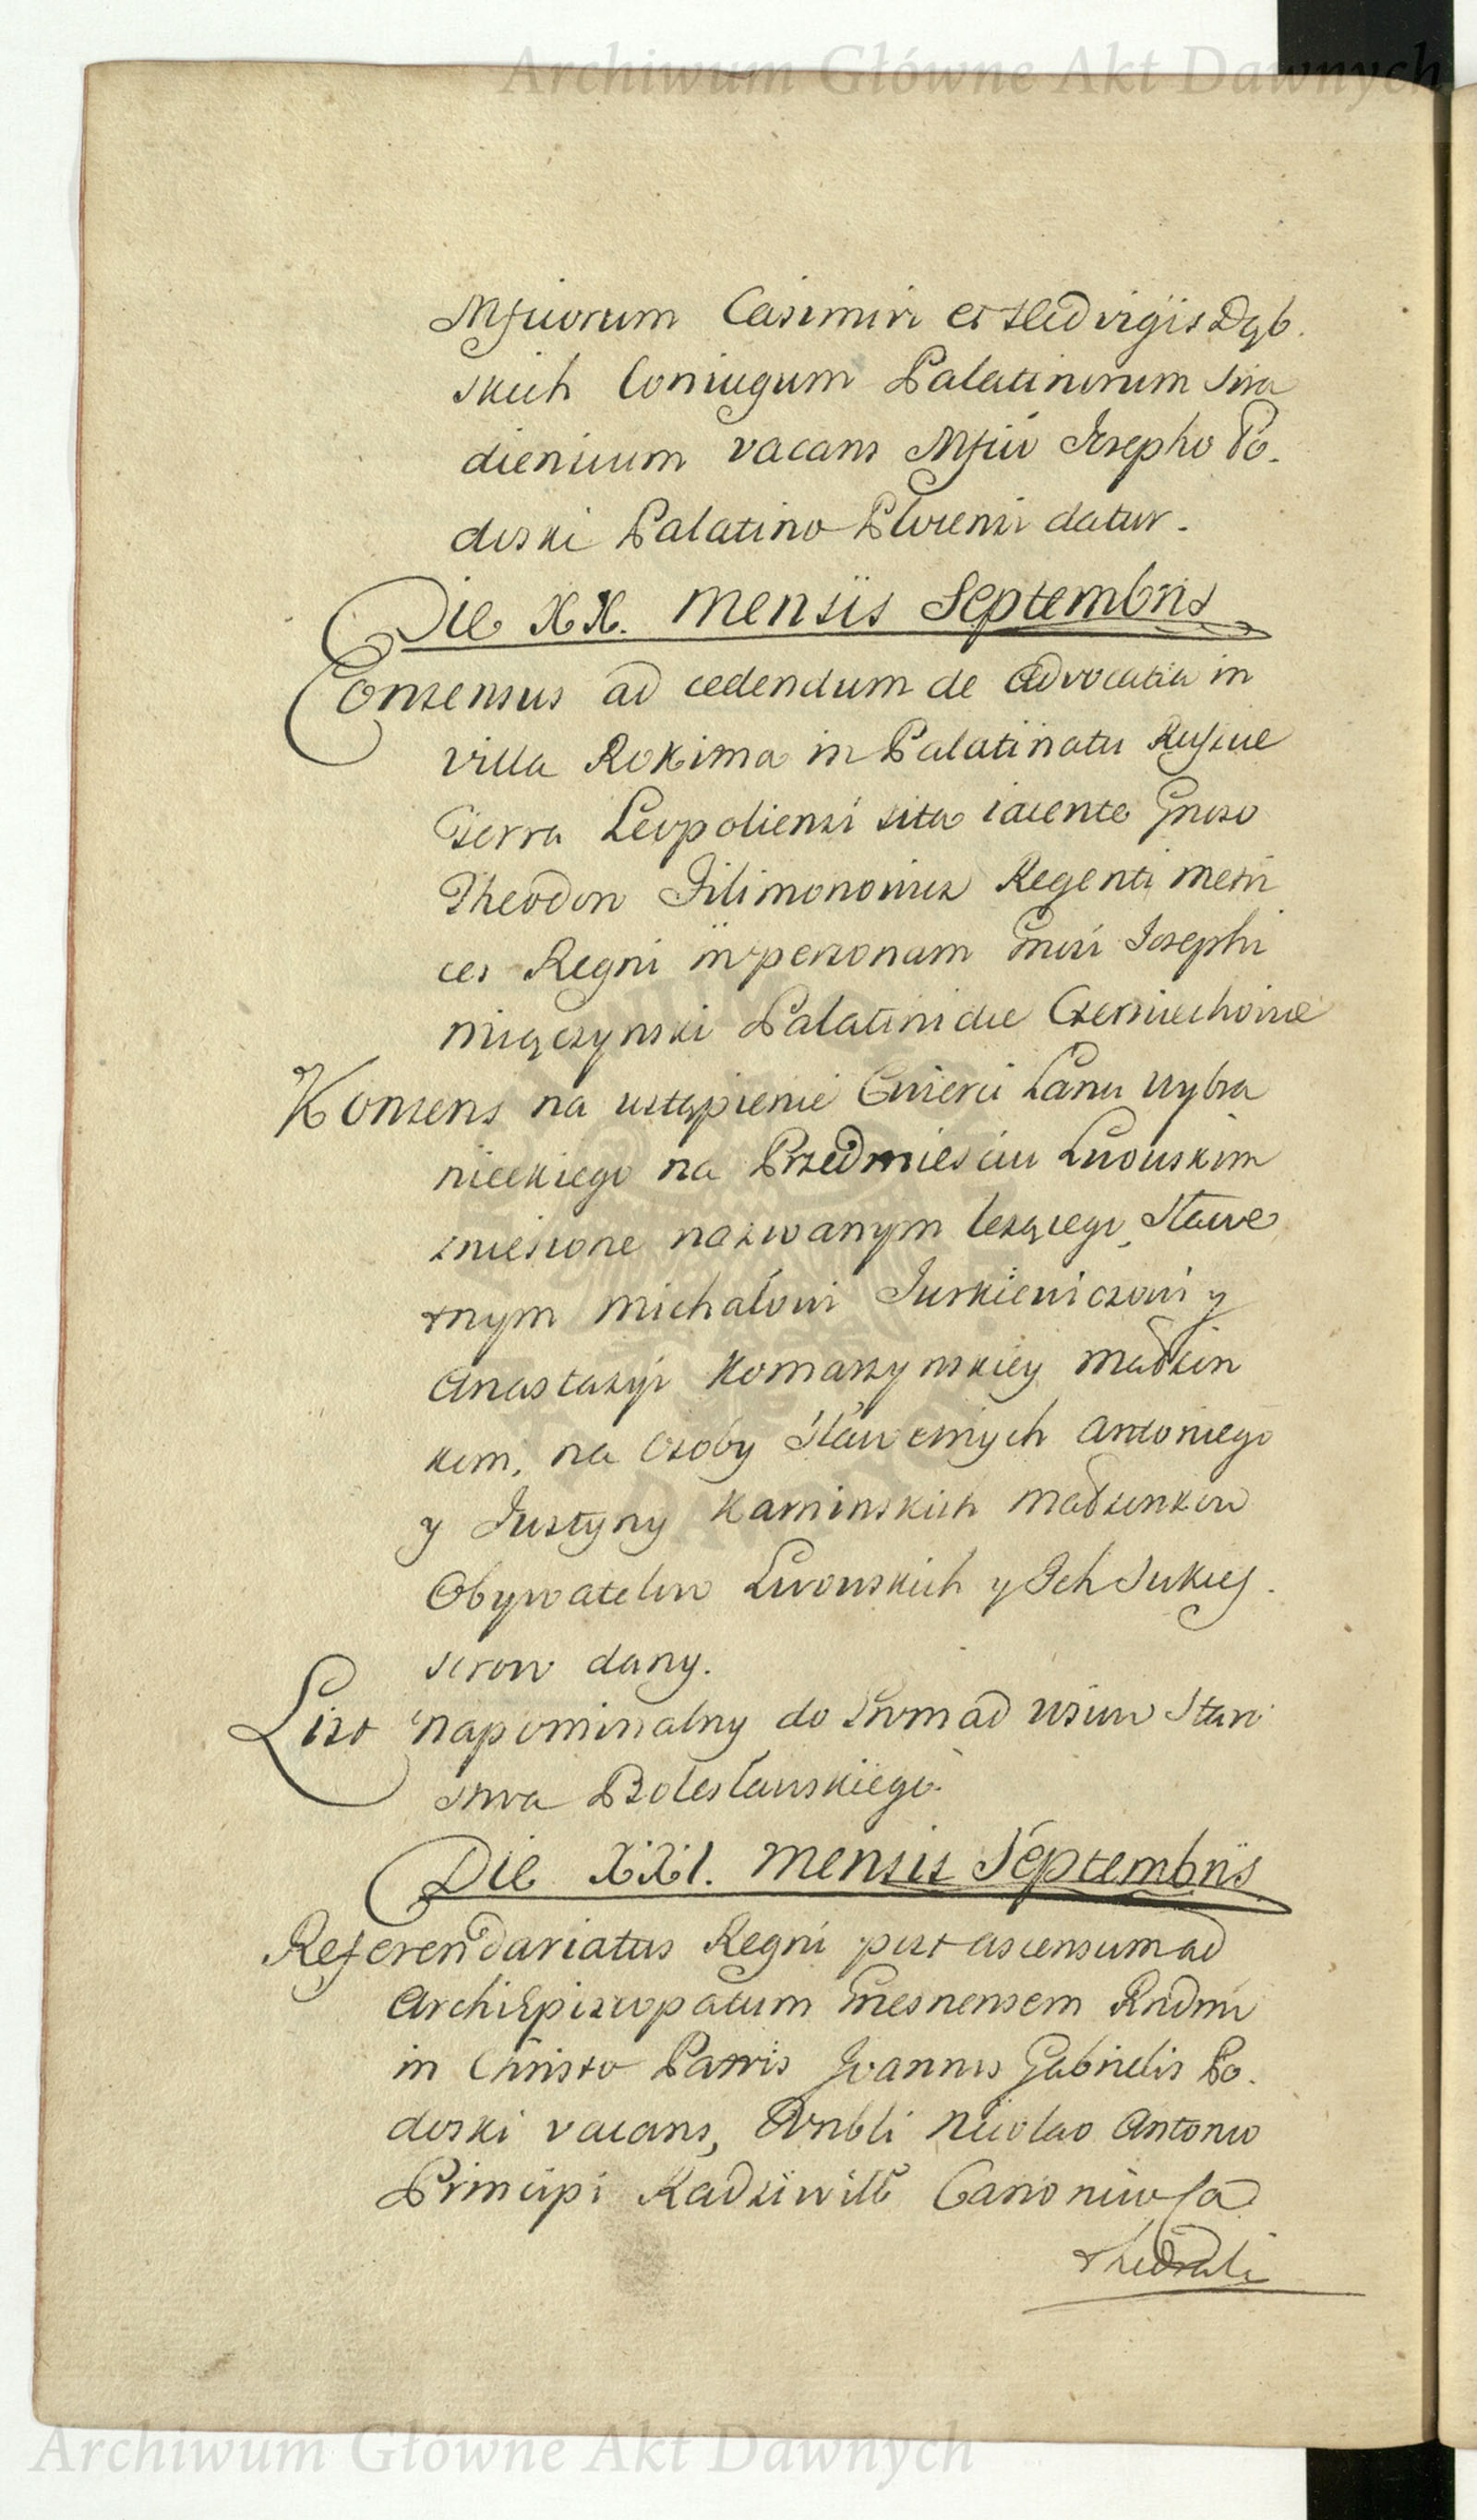 Archiwum Główne Akt Dawnych
Mficorum Casimiri et Hedvigis Dąb.
skich Coniugum Palatinorum Sira
diensium vacans Mfico Josepho Po.
doski Palatino Plocensi datur.
Die XX. Mensis Septembris
Consensus ad cedendum de Advocatia in
villa Rokima in Palatinatu Russiae
Terra Leopoliensi sita iacente Gnoso
Theodoro Filimonowicz Regenti Metri
ces Regni in personam Gnosi Josephi
Miączynski Palatinidae Czerniechoviae
Konsens na ustąpienie Cwierci Łanu Wybra
nieckiego na Przedmiesciu Lwowskim
zniesione nazwanym leżącego, Sławe
tnym Michałowi Jurkiewiczowi y
Anastazyi Komarzynskiey Małżon
kom, na Osoby Sławetnych Antoniego
y Justyny Kaminskich Małżonkow
Obywatelow Lwowskich y Ich Sukces.
sorow dany.
List napominalny do Gromad wsiow Staro
stwa Bolesławskiego.
Die XXI. Mensis Septembris
Referendariatus Regni post ascensum ad
Archi Episcopatum Gnesnensem Rndmi
in Christo Patris Joannis Gabrielis Po.
doski vacans, Vnbli Nicolao Antonio
Principi Radziwiłł Canonico Ca
thedrali
Archiwum Główne Akt Dawnych